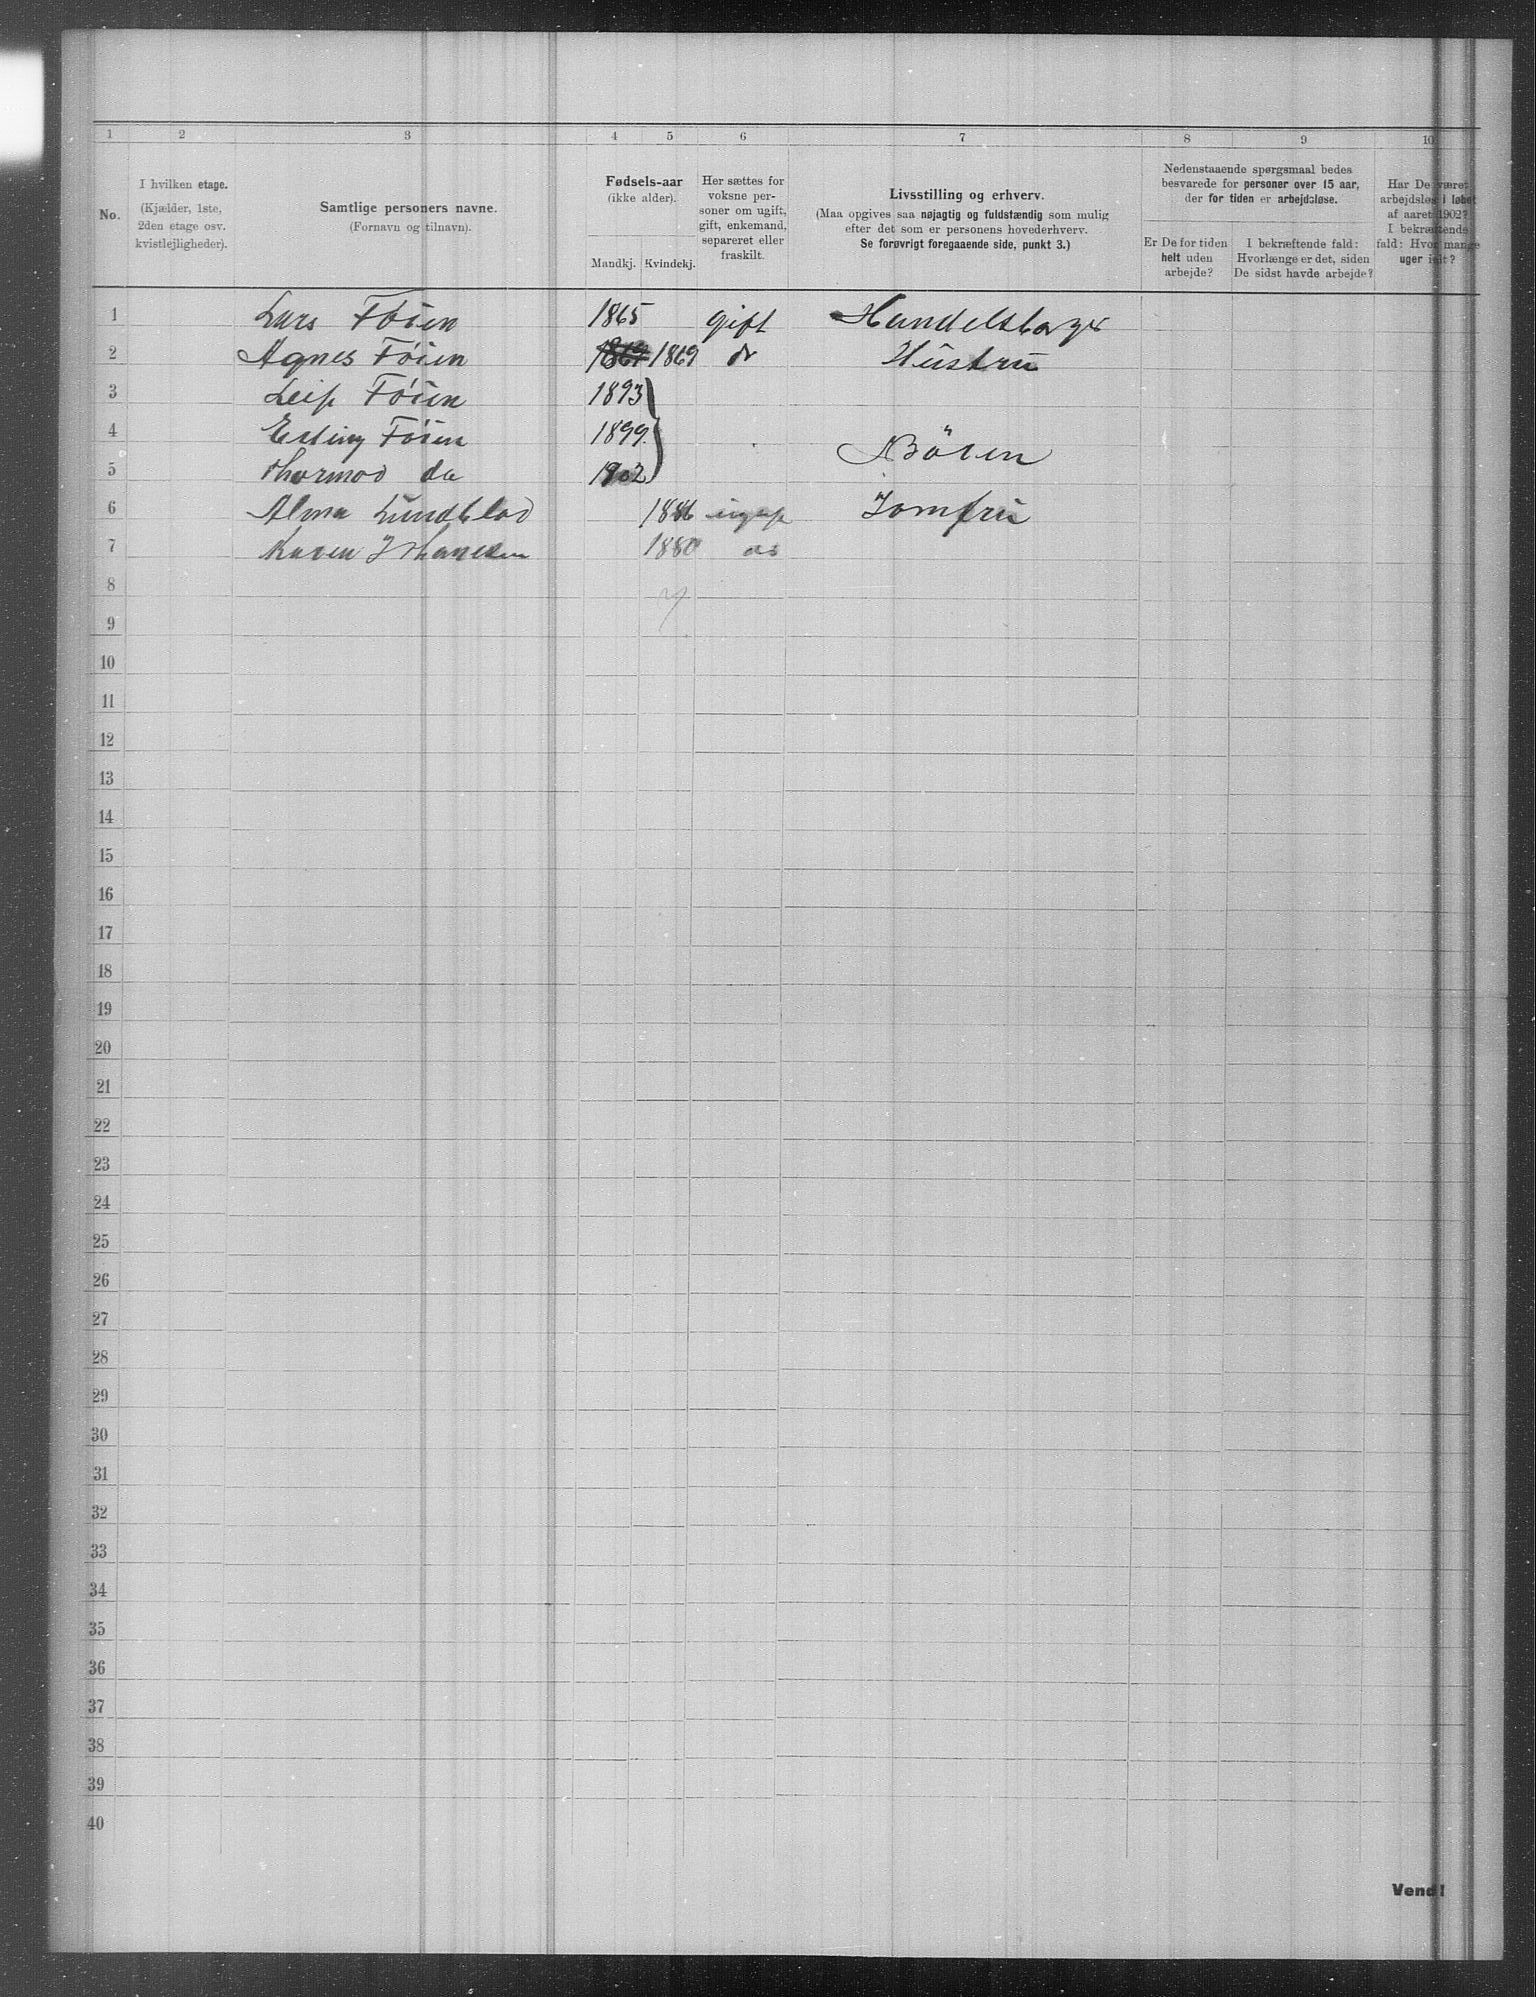 1 2 3 4 5 6 7 8 9 10
No.
I hvilken etage.
(Kjælder, 1ste,
2den etage osv.
kvistlejligheder).
Samtlige personers navne.
(Fornavn og tilnavn).
Fødsels-aar
(ikke alder).
Mandkj. Kvindekj.
Her sættes for
voksne per-
soner om ugift,
gift, enkemand,
separeret eller
fraskilt.
Livsstilling og erhverv.
(Maa opgives saa nøjagtig og fuldstændig som mulig
efter det som er personens hovederhverv.
Se forøvrigt foregaaende side, punkt 3.)
Nedenstaaende spørgsmaal bedes
besvarede for personer over 15 aar,
der for tiden er arbejdsløse.
Er De for tiden
helt uden
arbejde?
I bekræftende fald:
Hvorlænge er det, siden
De sidst havde arbejde?
Har De været
arbejdsløs i løbet
af aaret 1902?
I bekræftende
fald: Hvor mange
uger ialt?
1 Lars Föien 1865 gift Handelsborger
2 Agnes Föien 1869 1869 do Hustru
3 Leif Föien 1893
4 Erling Föien 1899
Bören
5 Thormod do 1902
6 Alma Lundblad 1886 ugift Jomfru
7 Karen Johansen 1880 do
8
9
10
11
12
13
14
15
16
17
18
19
20
21
22
23
24
25
26
27
28
29
30
31
32
33
34
35
36
37
38
39
40
Vend!